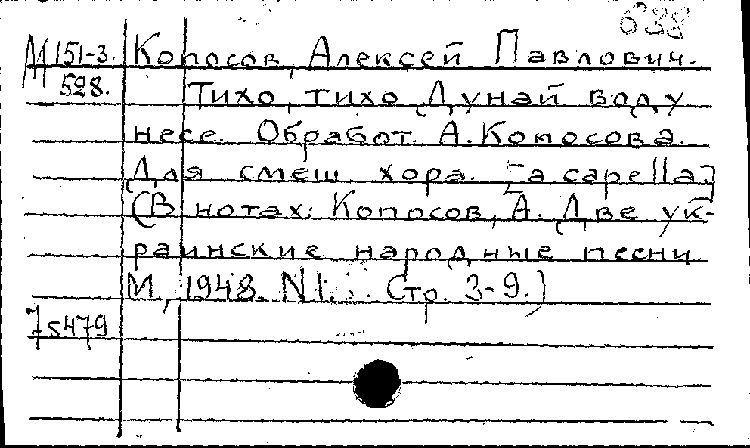 638
М 151-3. Копосов, Алексей Павлович.
528. Тихо, тихо Дунай воду
несе. Обработ. А. Копосова.
Для смеш. хора [a capella]
(В нотах: Копосов, А. Две ук-
раинские народные песни
М., 1948. N1. Стр. 3-9.)
75479